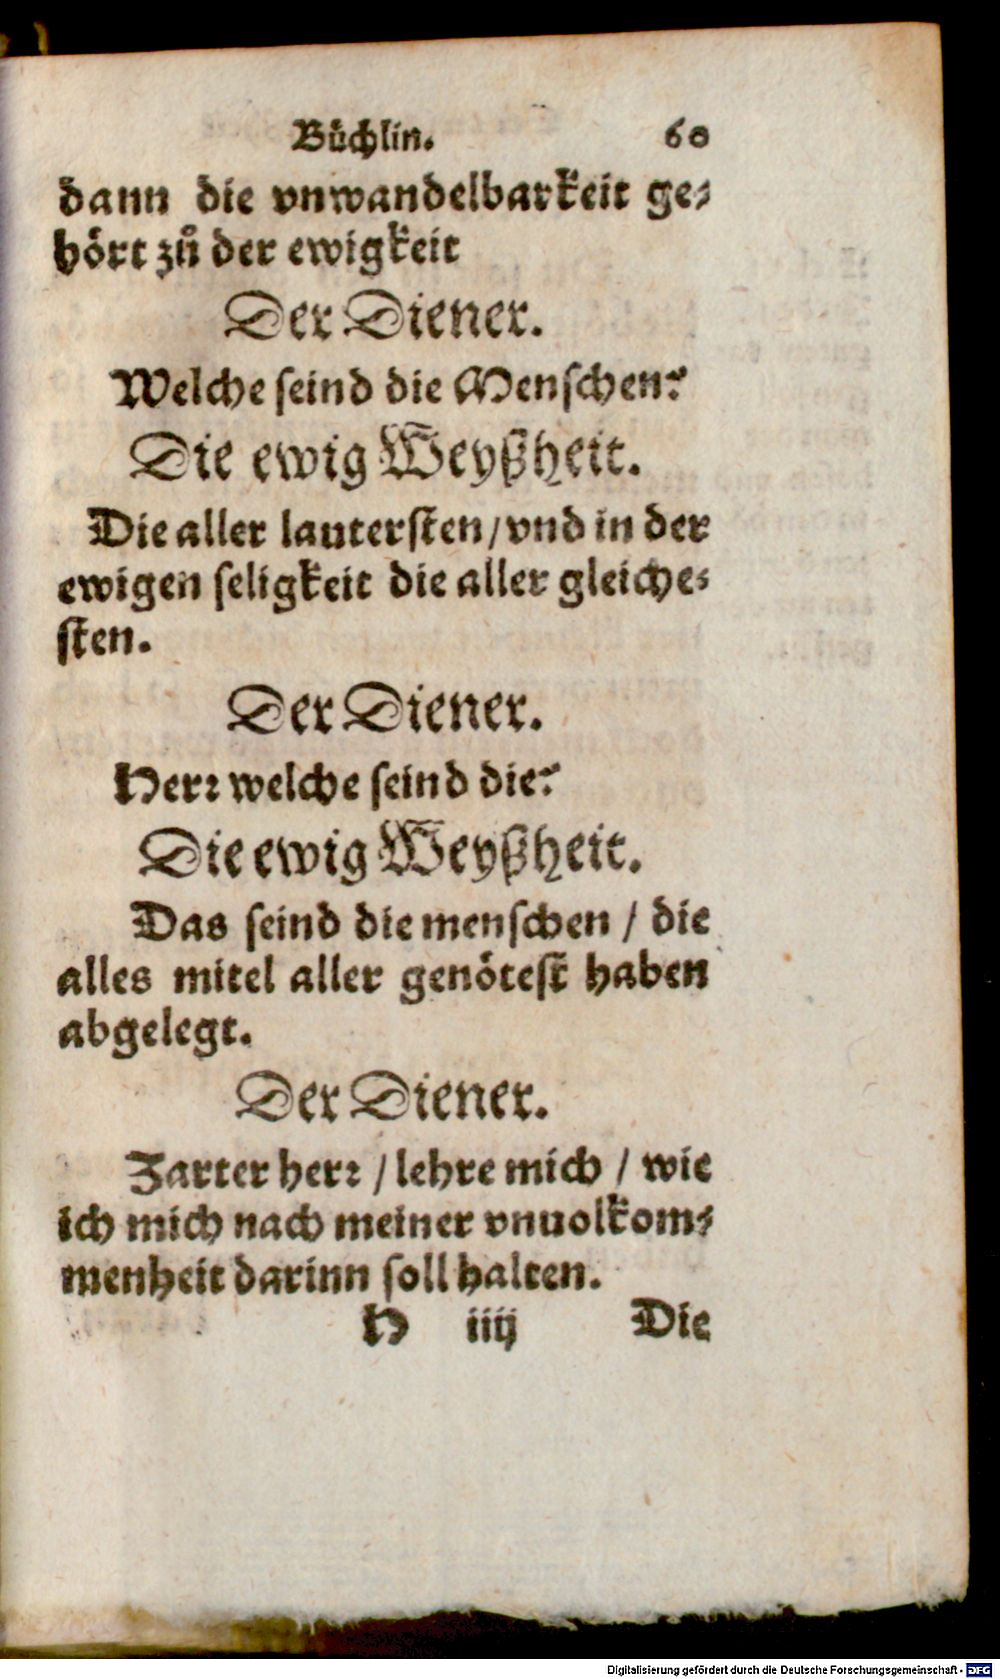 Büchlin. 60
dann die vnwandelbarkeit ge⸗
hört zů der ewigkeit
Der Diener.
Welche seind die Menschen?
Die ewig Weyßheit.
Die aller lautersten/vnd in der
ewigen seligkeit die aller gleiche⸗
sten.
Der Diener.
Herr welche seind die?
Die ewig Weyßheit.
Das seind die menschen / die
alles mitel aller genötest haben
abgelegt.
Der Diener.
Zarter herr / lehre mich / wie
ich mich nach meiner vnuolkom⸗
menheit darinn soll halten.
H iiij Die
Digitalisierung gefördert durch die Deutsche Forschungsgemeinschaft - DFG